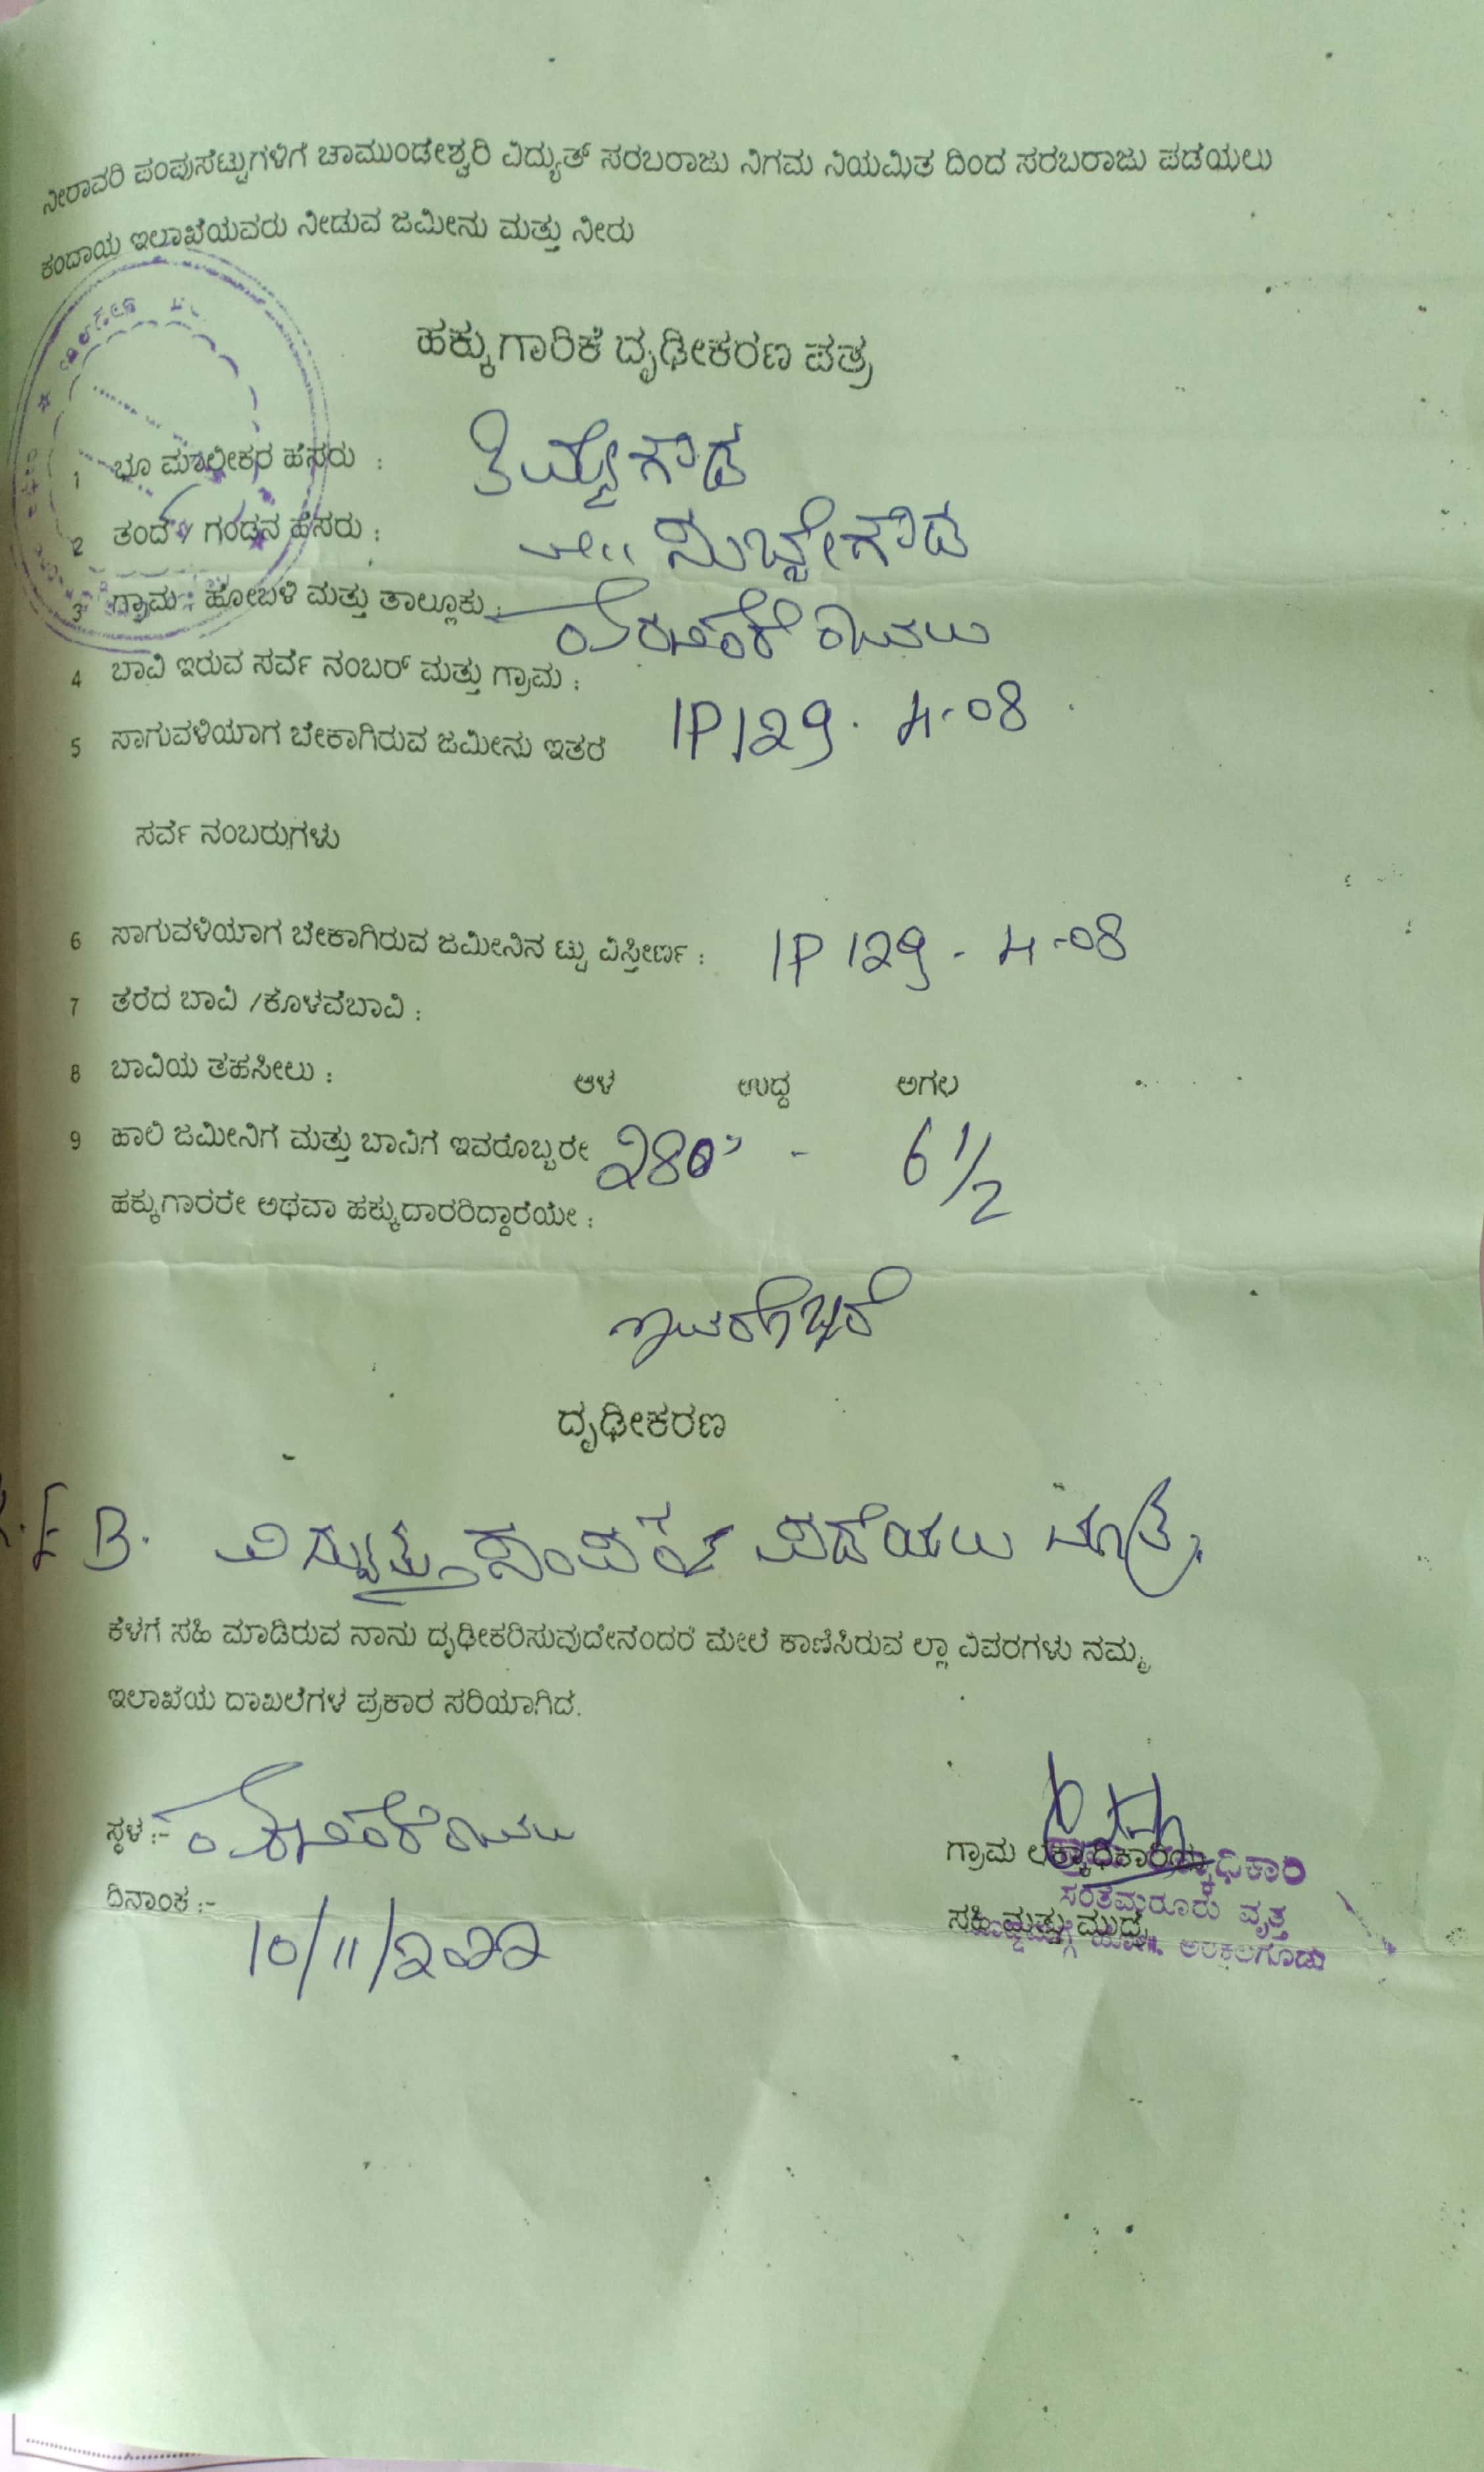 ನೀರಾವರಿ ಪಂಪುಸೆಟ್ಟುಗಳಿಗೆ ಚಾಮುಂಡೇಶ್ವರಿ ವಿದ್ಯುತ್ ಸರಬರಾಜು ನಿಗಮ ನಿಯಮಿತ ದಿಂದ ಸರಬರಾಜು ಪಡೆಯಲು
ಕಂದಾಯ ಇಲಾಖೆಯವರು ನೀಡುವ ಜಮೀನು ಮತ್ತು ನೀರು
ಹಕ್ಕುಗಾರಿಕೆ ದೃಢೀಕರಣ ಪತ್ರ
1 ಭೂ ಮಾಲೀಕರ ಹೆಸರು : ತಿಮ್ಮೇಗೌಡ
2 ತಂದೆ / ಗಂಡನ ಹೆಸರು :
3 ಗ್ರಾಮ : ಹೋಬಳಿ ಮತ್ತು ತಾಲ್ಲೂಕು :
4 ಬಾವಿ ಇರುವ ಸರ್ವೆ ನಂಬರ್ ಮತ್ತು ಗ್ರಾಮ :
5 ಸಾಗುವಳಿಯಾಗ ಬೇಕಾಗಿರುವ ಜಮೀನು ಇತರೆ 1P129. 4-08
ಸರ್ವೆ ನಂಬರುಗಳು
6 ಸಾಗುವಳಿಯಾಗ ಬೇಕಾಗಿರುವ ಜಮೀನಿನ ಟ್ಟು ವಿಸ್ತೀರ್ಣ : 1P 129 - 4-08
7 ತೆರೆದ ಬಾವಿ /ಕೊಳವೆಬಾವಿ :
8 ಬಾವಿಯ ತಹಸೀಲು : ಆಳ ಉದ್ದ ಅಗಲ
9 ಹಾಲಿ ಜಮೀನಿಗೆ ಮತ್ತು ಬಾವಿಗೆ ಇವರೊಬ್ಬರೇ 280' - 6 1/2
ಹಕ್ಕುಗಾರರೇ ಅಥವಾ ಹಕ್ಕುದಾರರಿದ್ದಾರೆಯೇ :
ಇವರೊಬ್ಬರೆ
ದೃಢೀಕರಣ
E B. ವಿದ್ಯುತ್ ಸಂಪರ್ಕ ಪಡೆಯಲು ಮಾತ್ರ.
ಕೆಳಗೆ ಸಹಿ ಮಾಡಿರುವ ನಾನು ದೃಢೀಕರಿಸುವುದೇನೆಂದರೆ ಮೇಲೆ ಕಾಣಿಸಿರುವ ಲ್ಲಾ ವಿವರಗಳು ನಮ್ಮ
ಇಲಾಖೆಯ ದಾಖಲೆಗಳ ಪ್ರಕಾರ ಸರಿಯಾಗಿದೆ.
ಸ್ಥಳ :-
ಗ್ರಾಮ ಲೆಕ್ಕಾಧಿಕಾರಿಯ
ಸಂತೆಮರೂರು ವೃತ್ತ
ದಿನಾಂಕ :- 10/11/2022
ಸಹಿ ಮತ್ತು ಮುದ್ರೆ
ಅರಕಲಗೂಡು